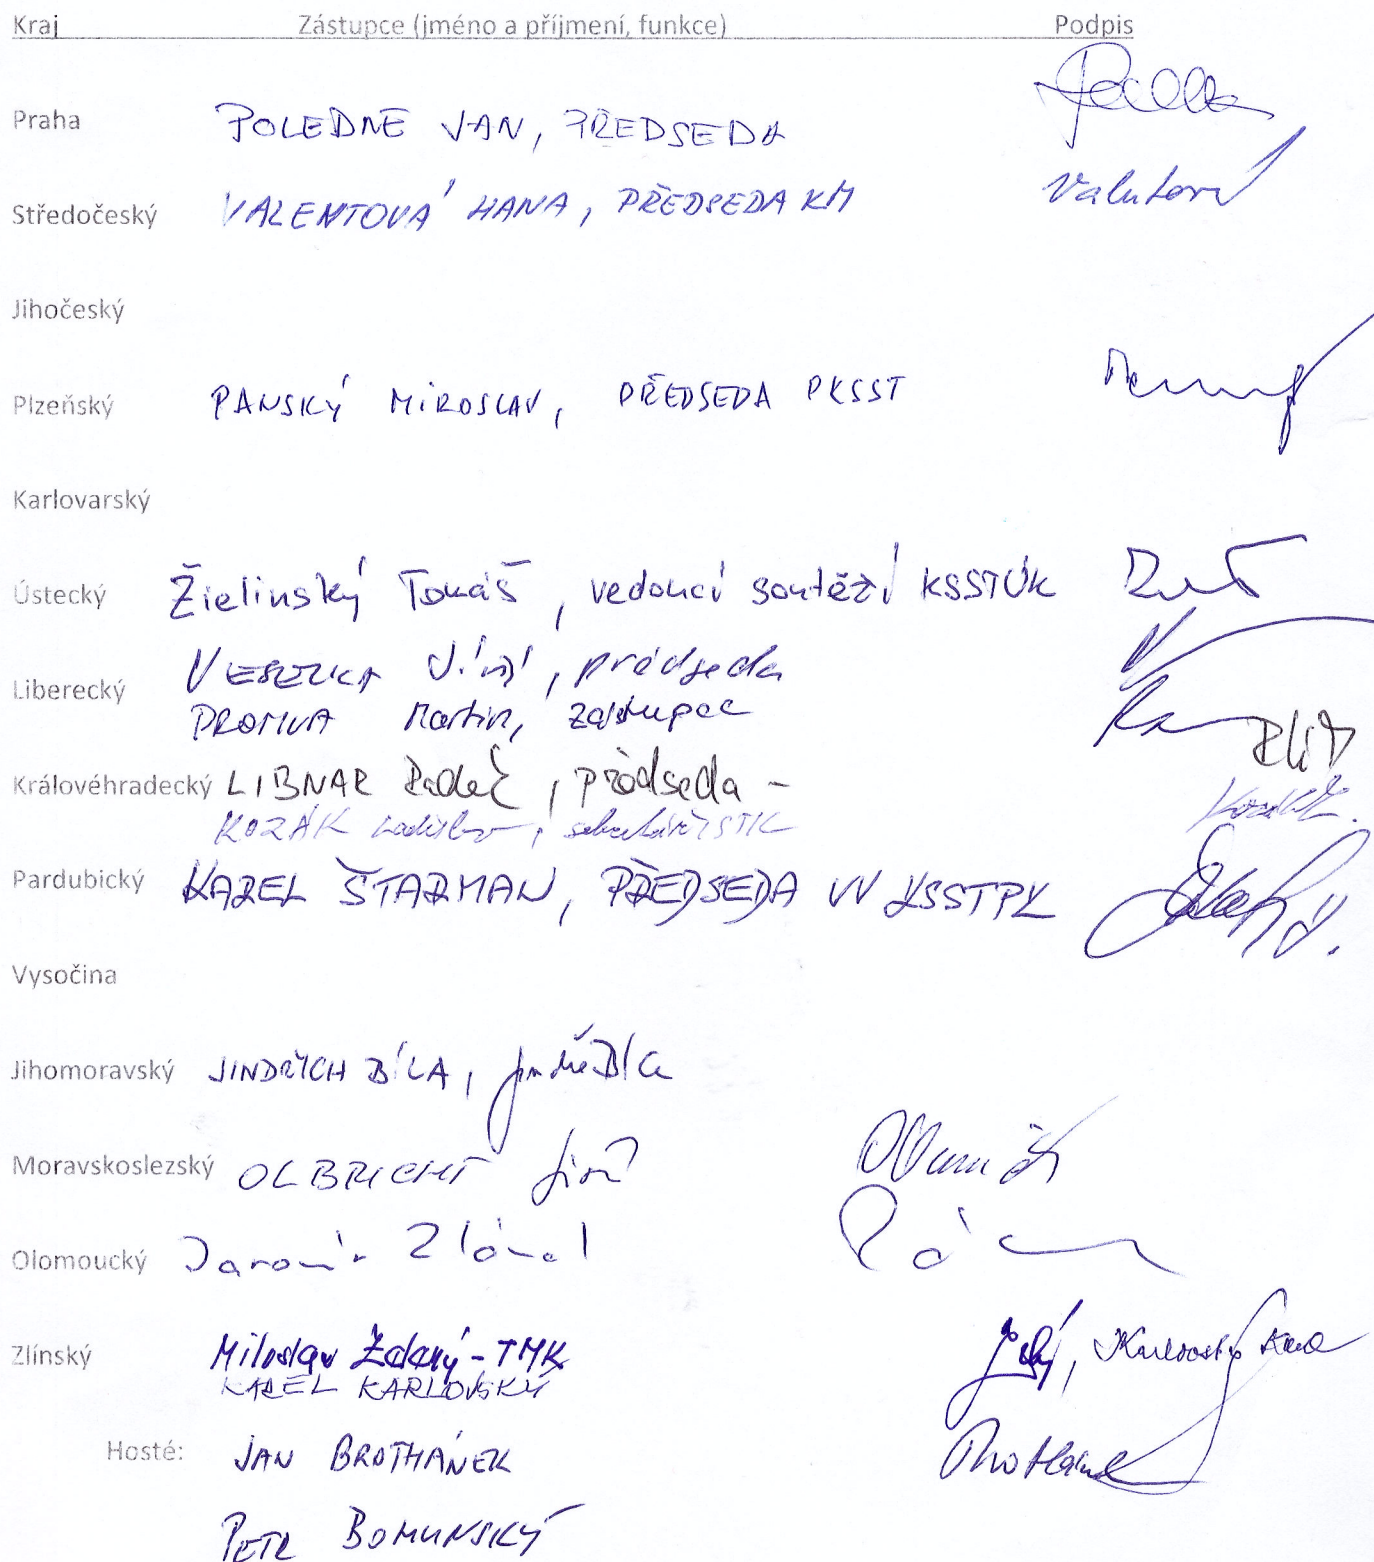 Kraj Zástupce (jméno a příjmení, funkce) Podpis
Praha POLEDNE JAN, PŘEDSEDA
Středočeský VALENTOVÁ HANA, PŘEDSEDA KM Valentová
Jihočeský
Plzeňský PANSKÝ MIROSLAV, PŘEDSEDA PKSST
Karlovarský
Ústecký Žielinský Tomáš, vedoucí soutěží KSSTÚK
Liberecký Jiří, předseda
Martin, zástupce
Královéhradecký LIBNAR Radek, předseda -
KOZÁK Ladislav, sekretář
Pardubický KAREL ŠTARMAN, PŘEDSEDA VV KSSTPK
Vysočina
Jihomoravský JINDŘICH BÍLA,
Moravskoslezský OLBRICHT Jiří
Olomoucký Jaromír
Zlínský Miloslav Zelený - TMK
KAREL KARLOVSKÝ
Hosté: JAN BROTHÁNEK
PETR BOHUNSKÝ